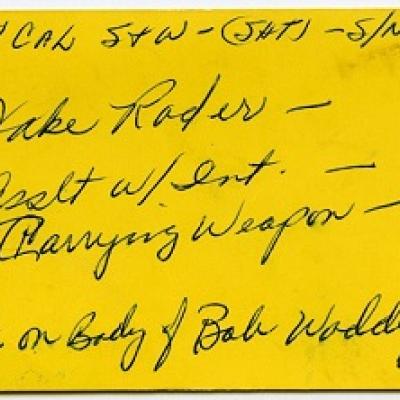 CAL S+W - (SHT) - S/N
Jake Rader -
Asslt w/Int. -
Carrying Weapon -
on Body of Bob Wadd